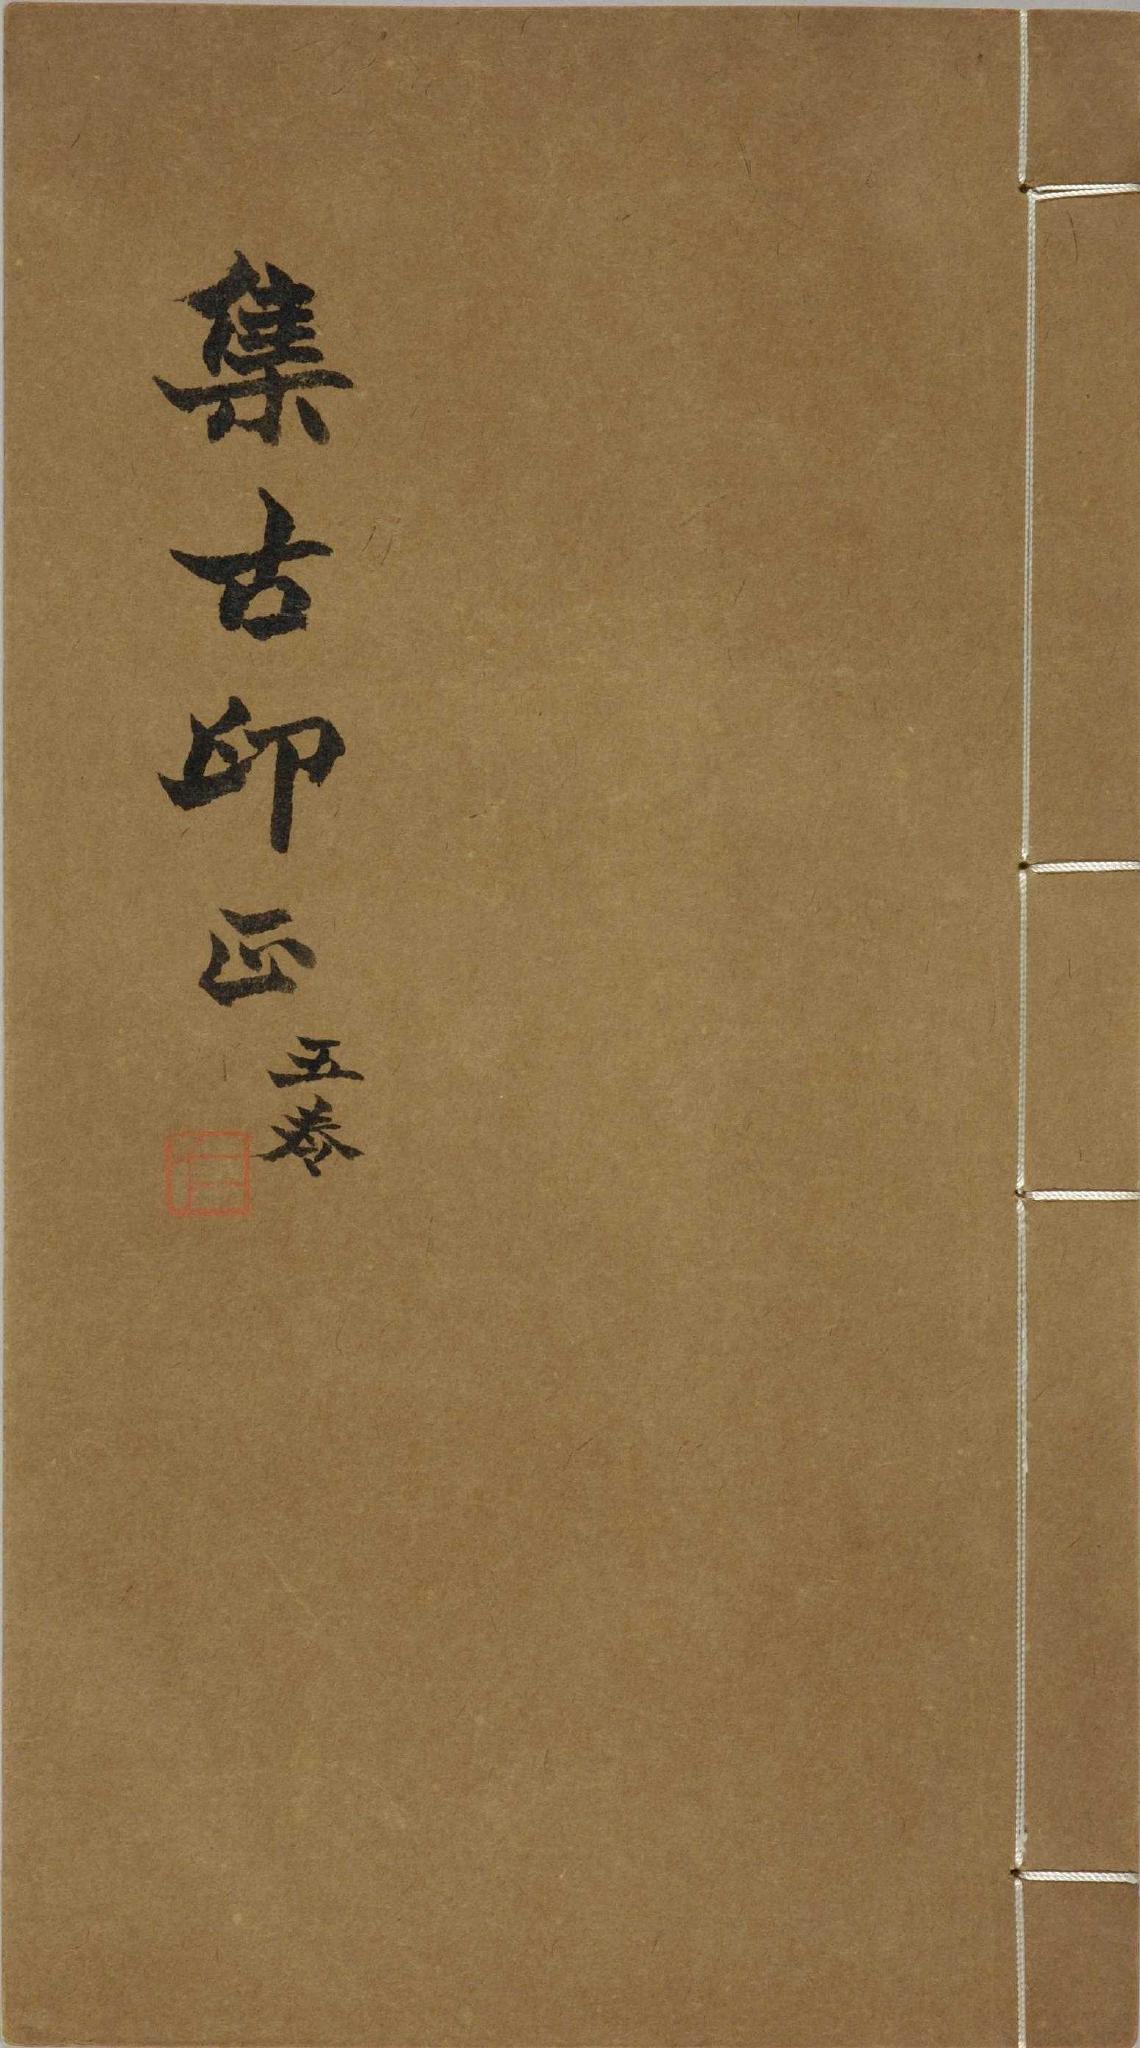 集古印正
五卷